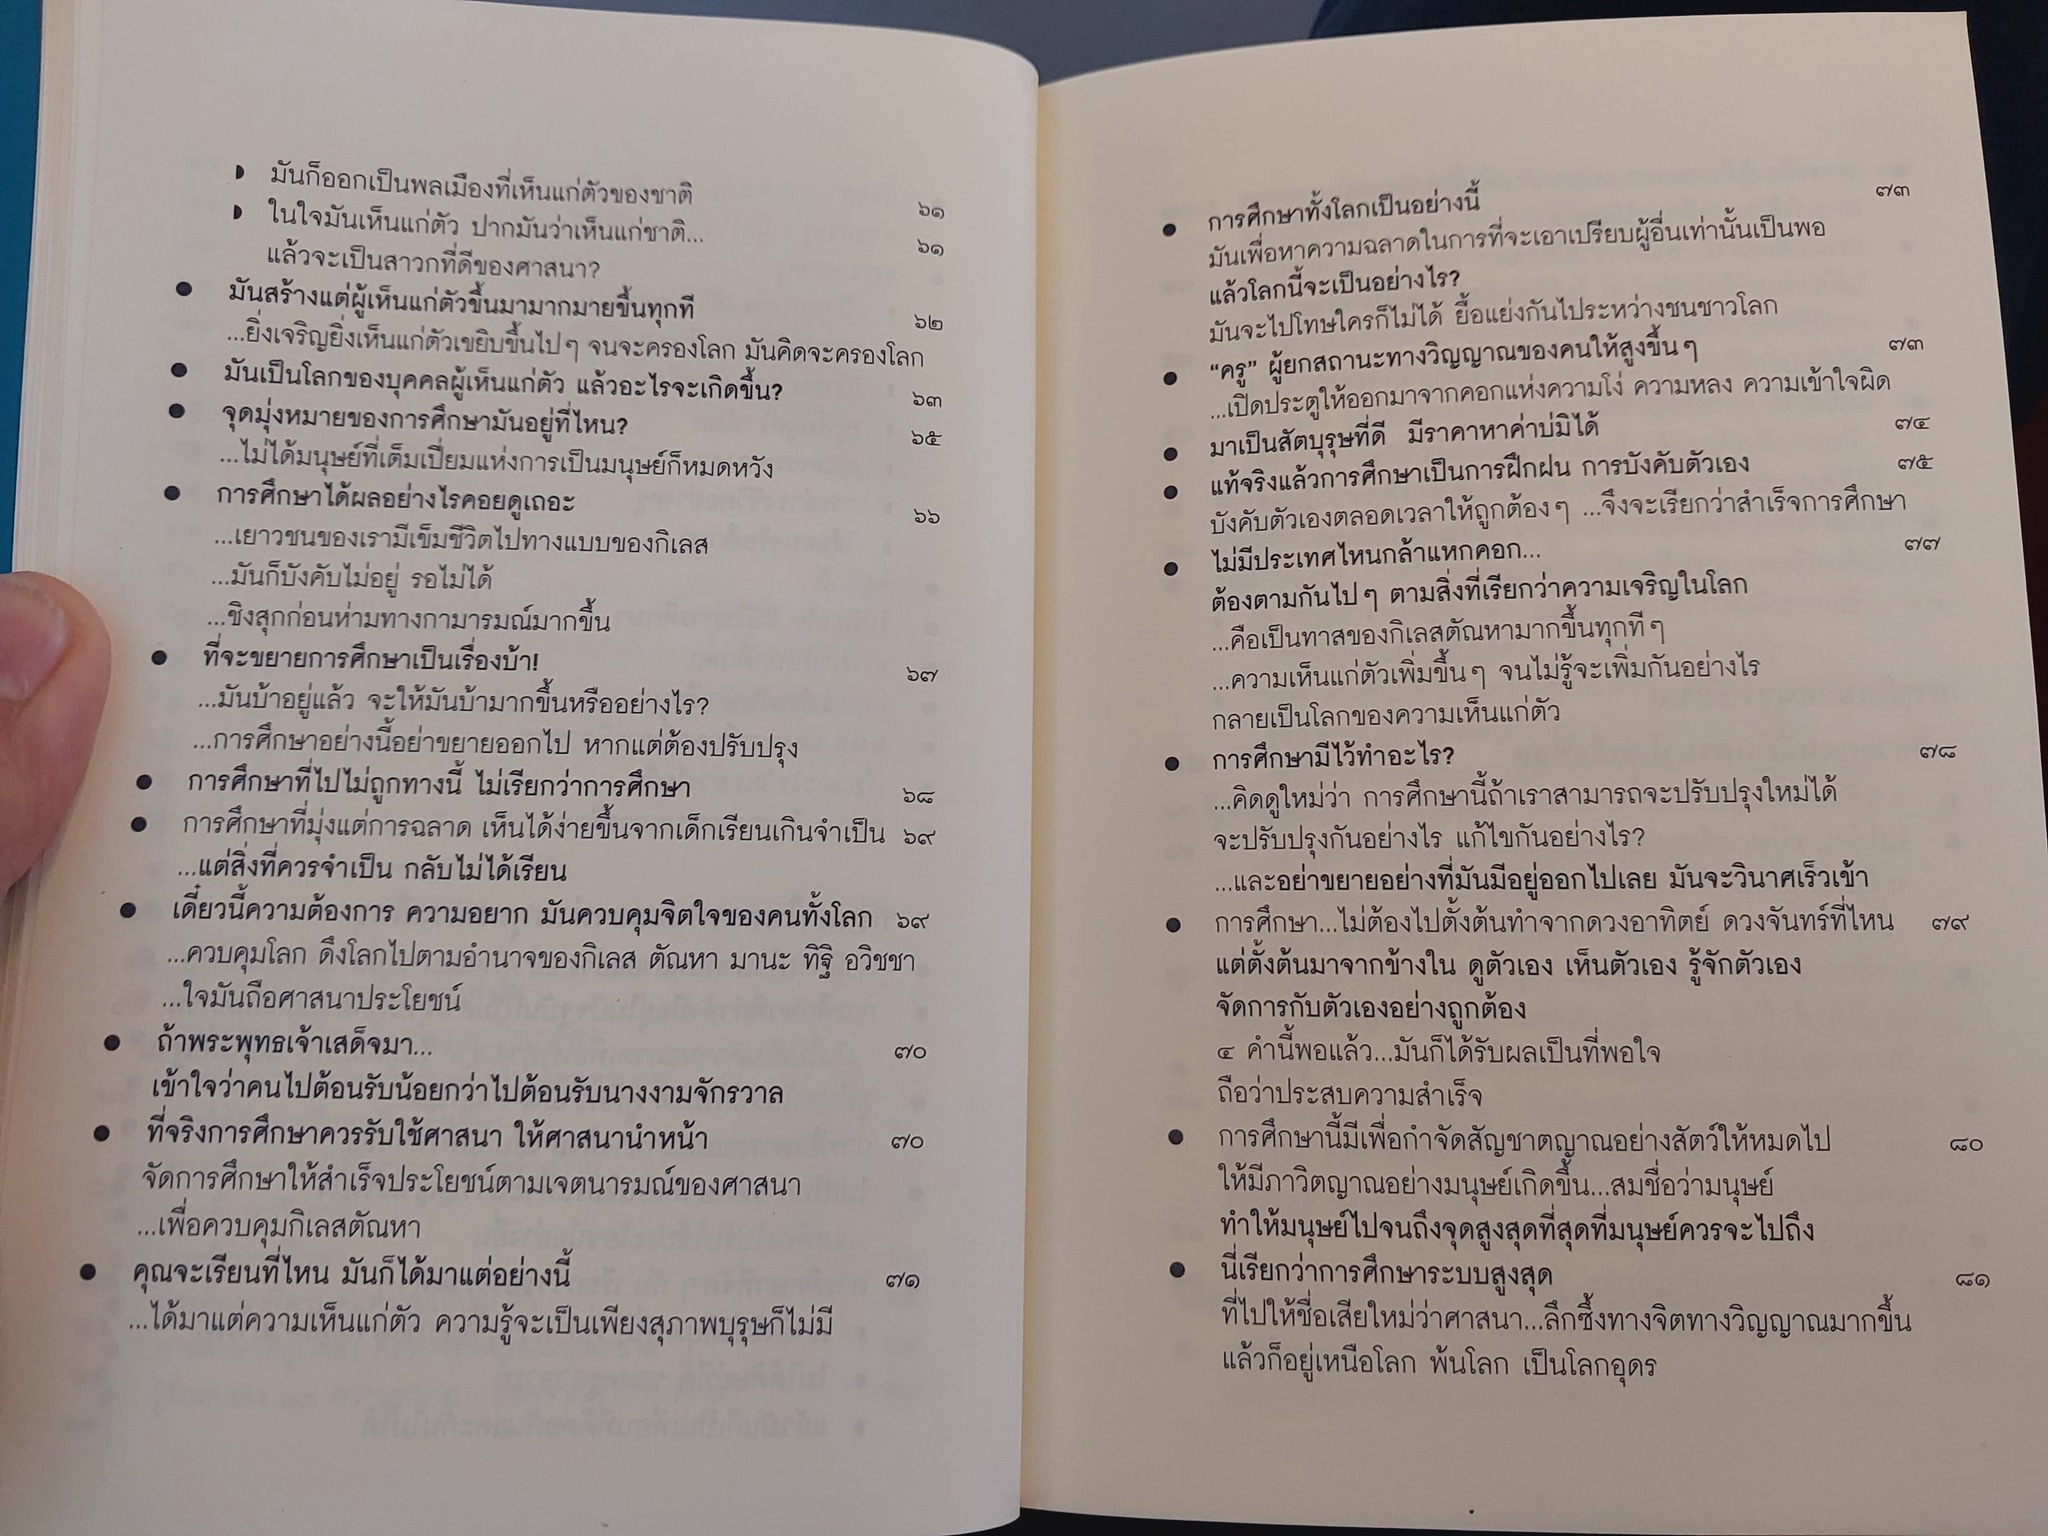 มันก็ออกเป็นพลเมืองที่เห็นแก่ตัวของชาติ ๖๑
ในใจมันเห็นแก่ตัว ปากมันว่าเห็นแก่ชาติ... ๖๑
แล้วจะเป็นสาวกที่ดีของศาสนา?
มันสร้างแต่ผู้เห็นแก่ตัวขึ้นมามากมายขึ้นทุกที ๖๒
...ยิ่งเจริญยิ่งเห็นแก่ตัวเขยิบขึ้นไปๆ จนจะครองโลก มันคิดจะครองโลก
มันเป็นโลกของบุคคลผู้เห็นแก่ตัว แล้วอะไรจะเกิดขึ้น? ๖๓
จุดมุ่งหมายของการศึกษามันอยู่ที่ไหน? ๖๕
...ไม่ได้มนุษย์ที่เต็มเปี่ยมแห่งการเป็นมนุษย์ก็หมดหวัง
การศึกษาได้ผลอย่างไรคอยดูเถอะ ๖๖
...เยาวชนของเรามีเข็มชีวิตไปทางแบบของกิเลส
...มันก็บังคับไม่อยู่ รอไม่ได้
...ชิงสุกก่อนห่ามทางกามารมณ์มากขึ้น
ที่จะขยายการศึกษาเป็นเรื่องบ้า! ๖๗
...มันบ้าอยู่แล้ว จะให้มันบ้ามากขึ้นหรืออย่างไร?
...การศึกษาอย่างนี้อย่าขยายออกไป หากแต่ต้องปรับปรุง
การศึกษาที่ไปไม่ถูกทางนี้ ไม่เรียกว่าการศึกษา ๖๘
การศึกษาที่มุ่งแต่การฉลาด เห็นได้ง่ายขึ้นจากเด็กเรียนเกินจำเป็น ๖๙
...แต่สิ่งที่ควรจำเป็น กลับไม่ได้เรียน
เดี๋ยวนี้ความต้องการ ความอยาก มันควบคุมจิตใจของคนทั้งโลก ๖๙
...ควบคุมโลก ดึงโลกไปตามอำนาจของกิเลส ตัณหา มานะ ทิฐิ อวิชชา
...ใจมันถือศาสนาประโยชน์
ถ้าพระพุทธเจ้าเสด็จมา... ๗๐
เข้าใจว่าคนไปต้อนรับน้อยกว่าไปต้อนรับนางงามจักรวาล
ที่จริงการศึกษาควรรับใช้ศาสนา ให้ศาสนานำหน้า ๗๐
จัดการศึกษาให้สำเร็จประโยชน์ตามเจตนารมณ์ของศาสนา
...เพื่อควบคุมกิเลสตัณหา
คุณจะเรียนที่ไหน มันก็ได้มาแต่อย่างนี้ ๗๑
...ได้มาแต่ความเห็นแก่ตัว ความรู้จะเป็นเพียงสุภาพบุรุษก็ไม่มี
การศึกษาทั้งโลกเป็นอย่างนี้ ๗๓
มันเพื่อหาความฉลาดในการที่จะเอาเปรียบผู้อื่นเท่านั้นเป็นพอ
แล้วโลกนี้จะเป็นอย่างไร?
มันจะไปโทษใครก็ไม่ได้ ยื้อแย่งกันไประหว่างชนชาวโลก
“ครู” ผู้ยกสถานะทางวิญญาณของคนให้สูงขึ้นๆ ๗๓
...เปิดประตูให้ออกมาจากคอกแห่งความโง่ ความหลง ความเข้าใจผิด
มาเป็นสัตบุรุษที่ดี มีราคาหาค่าบ่มิได้ ๗๔
แท้จริงแล้วการศึกษาเป็นการฝึกฝน การบังคับตัวเอง ๗๕
บังคับตัวเองตลอดเวลาให้ถูกต้องๆ ...จึงจะเรียกว่าสำเร็จการศึกษา
ไม่มีประเทศไหนกล้าแหกคอก... ๗๗
ต้องตามกันไปๆ ตามสิ่งที่เรียกว่าความเจริญในโลก
...คือเป็นทาสของกิเลสตัณหามากขึ้นทุกทีๆ
...ความเห็นแก่ตัวเพิ่มขึ้นๆ จนไม่รู้จะเพิ่มกันอย่างไร
กลายเป็นโลกของความเห็นแก่ตัว
การศึกษามีไว้ทำอะไร? ๗๘
...คิดดูใหม่ว่า การศึกษานี้ถ้าเราสามารถจะปรับปรุงใหม่ได้
จะปรับปรุงกันอย่างไร แก้ไขกันอย่างไร?
...และอย่าขยายอย่างที่มันมีอยู่ออกไปเลย มันจะวินาศเร็วเข้า
การศึกษา...ไม่ต้องไปตั้งต้นทำจากดวงอาทิตย์ ดวงจันทร์ที่ไหน ๗๙
แต่ตั้งต้นมาจากข้างใน ดูตัวเอง เห็นตัวเอง รู้จักตัวเอง
จัดการกับตัวเองอย่างถูกต้อง
๔ คำนี้พอแล้ว...มันก็ได้รับผลเป็นที่พอใจ
ถือว่าประสบความสำเร็จ
การศึกษานี้มีเพื่อกำจัดสัญชาตญาณอย่างสัตว์ให้หมดไป ๘๐
ให้มีภาวิตญาณอย่างมนุษย์เกิดขึ้น...สมชื่อว่ามนุษย์
ทำให้มนุษย์ไปจนถึงจุดสูงสุดที่สุดที่มนุษย์ควรจะไปถึง
นี่เรียกว่าการศึกษาระบบสูงสุด ๘๑
ที่ไปให้ชื่อเสียใหม่ว่าศาสนา...ลึกซึ้งทางจิตทางวิญญาณมากขึ้น
แล้วก็อยู่เหนือโลก พ้นโลก เป็นโลกอุดร